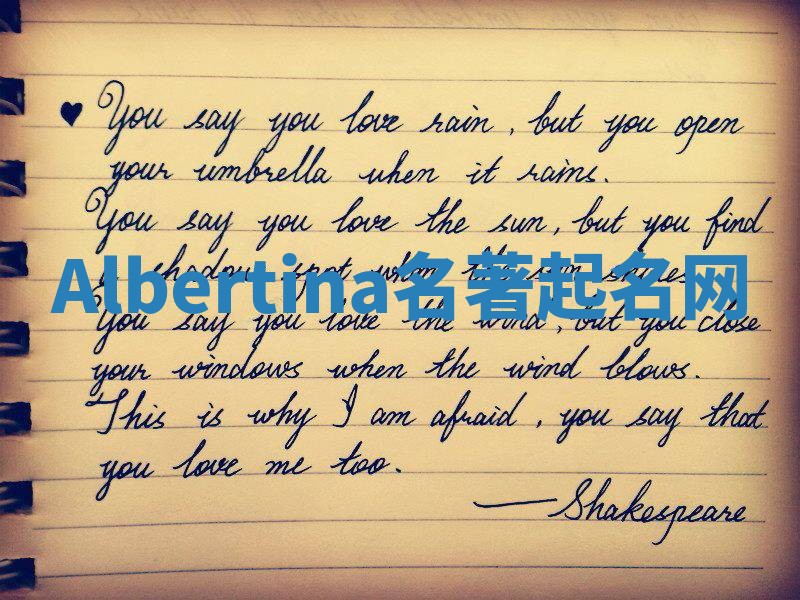 ♥ You say you love rain, but you open
your umbrella when it rains.
You say you love the sun, but you find
a shadow spot when the sun shines.
Albertina名著起名网
You say you love the wind, but you close
your windows when the wind blows.
This is why I am afraid, you say that
you love me too.
—Shakespeare